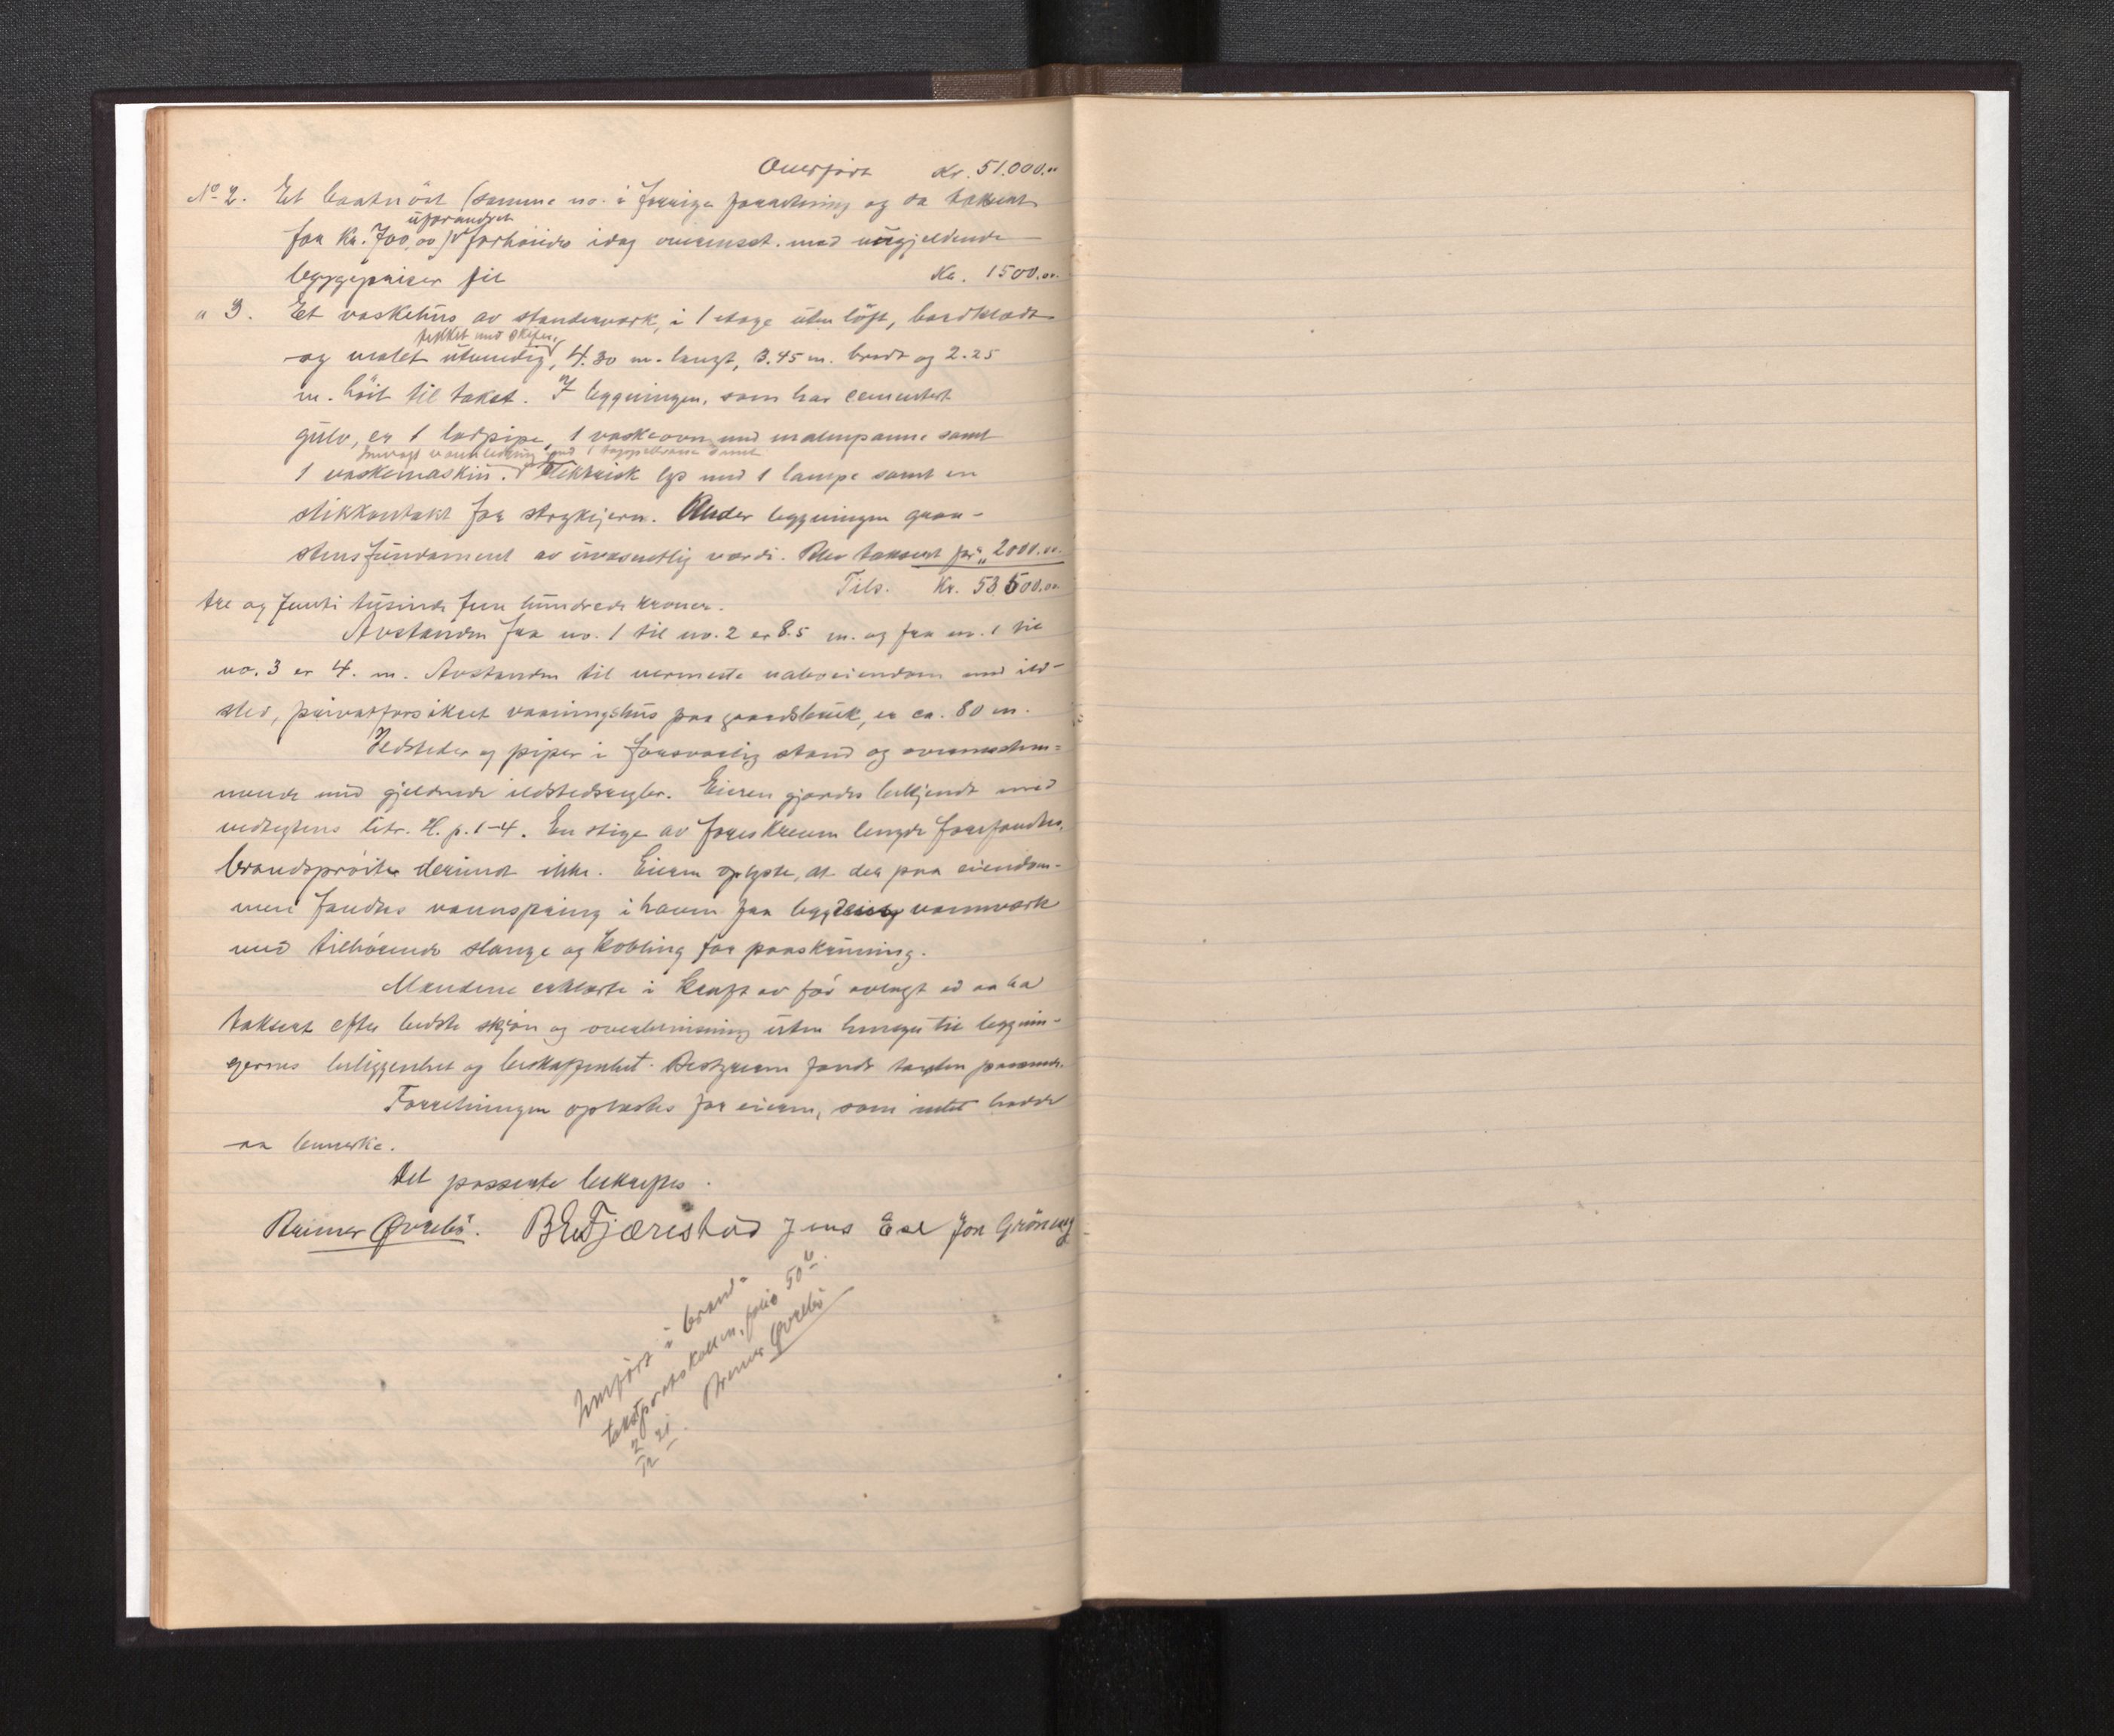 Overført Kr. 51.000.00
No 2. Et baatnöst (samme no. i forrige forretning og da taksert
uforandret
for Kr. 700.00) forhöides idag overensst. med nugjeldende
byggepriser til Kr. 1500.00
" 3. Et vaskehus av stenderverk, i 1 etage uten löft, bordklædt
tækket med skifer,
og malet utvendig, 4.30 m. langt, 3.45 m. bredt og 2.25
m. höit til taket. I bygningen, som har cementert
gulv, er 1 lerpipe, 1 vaskeovn med malmpanne samt
indlagt vandledning med 1 tappekrane samt
1 vaskemaskin. Elektrisk lys med 1 lampe samt en
stikkontakt for strykejern. Under bygningen graa-
stensfundament av uvæsentlig værdi. Blev taksert for " 2000.00
Tils. Kr. 53.500.00
tre og femti tusinde fem hundrede kroner.
Avstanden fra no. 1 til no. 2 er 8.5 m. og fra no. 1 til
no. 3 er 4. m. Avstanden til nærmeste naboeiendom med ild-
sted, privatforsikret vaaningshus paa gaardsbruk, er ca. 80 m.
Ildsteder og piper i forsvarlig stand og overensstem-
mende med gjeldende ildstedsregler. Eieren gjordes bekjendt med
vedtegtens litr. H. p. 1-4. En stige av foreskreven lengde forefandtes,
brandspröite derimot ikke. Eieren oplyste, at der paa eiendom-
men fandtes vannspring i haven fra bygdens vannverk
med tilhörende slange og kobling for paaskruning.
Mændene erklærte i kraft av för avlagt ed aa ha
taksert efter bedste skjön og overbevisning uten hensyn til bygnin-
gernes beliggenhet og beskaffenhet. Bestyreren fandt taksten passende.
Forretningen oplæstes for eieren, som intet hadde
aa bemerke.
Det passerte bekræftes.
Reimer Øvrebö. B E Fjærestad Jens Ese Jon Gröneng
Innfört i brand-
takstprotokollen, folio 50b
2/12 21. Reimer Øvrebö